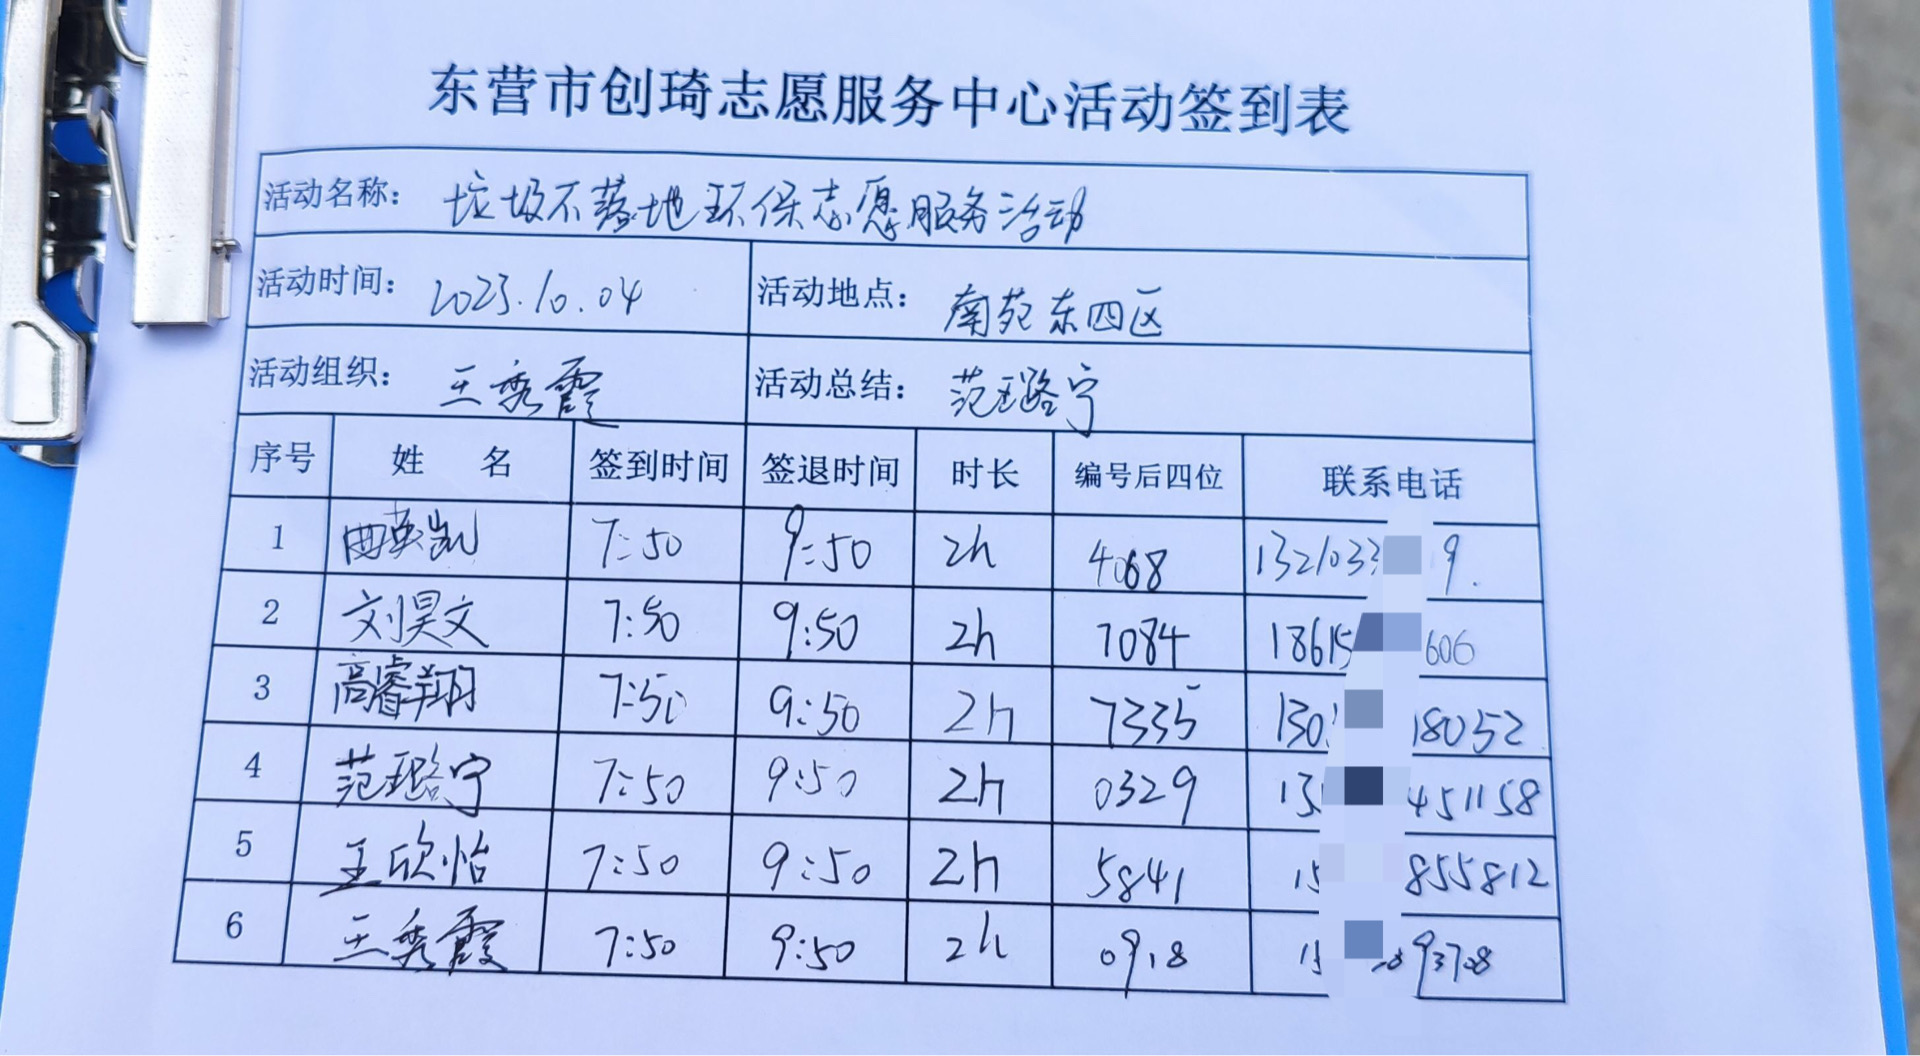 东营市创琦志愿服务中心活动签到表
活动名称： 垃圾不落地环保志愿服务活动
活动时间： 2023.10.04 活动地点： 南苑东四区
活动组织： 王秀霞 活动总结： 范璐宁
序号 姓 名 签到时间 签退时间 时长 编号后四位 联系电话
1 曲英凯 7:50 9:50 2h 4068 1321033 9.
2 刘昊文 7:50 9:50 2h 7084 18615 606
3 高睿翔 7:50 9:50 2h 7335 130 18052
4 范璐宁 7:50 9:50 2h 0329 13 451158
5 王欣怡 7:50 9:50 2h 5841 15 855812
6 王秀霞 7:50 9:50 2h 0918 15 93708